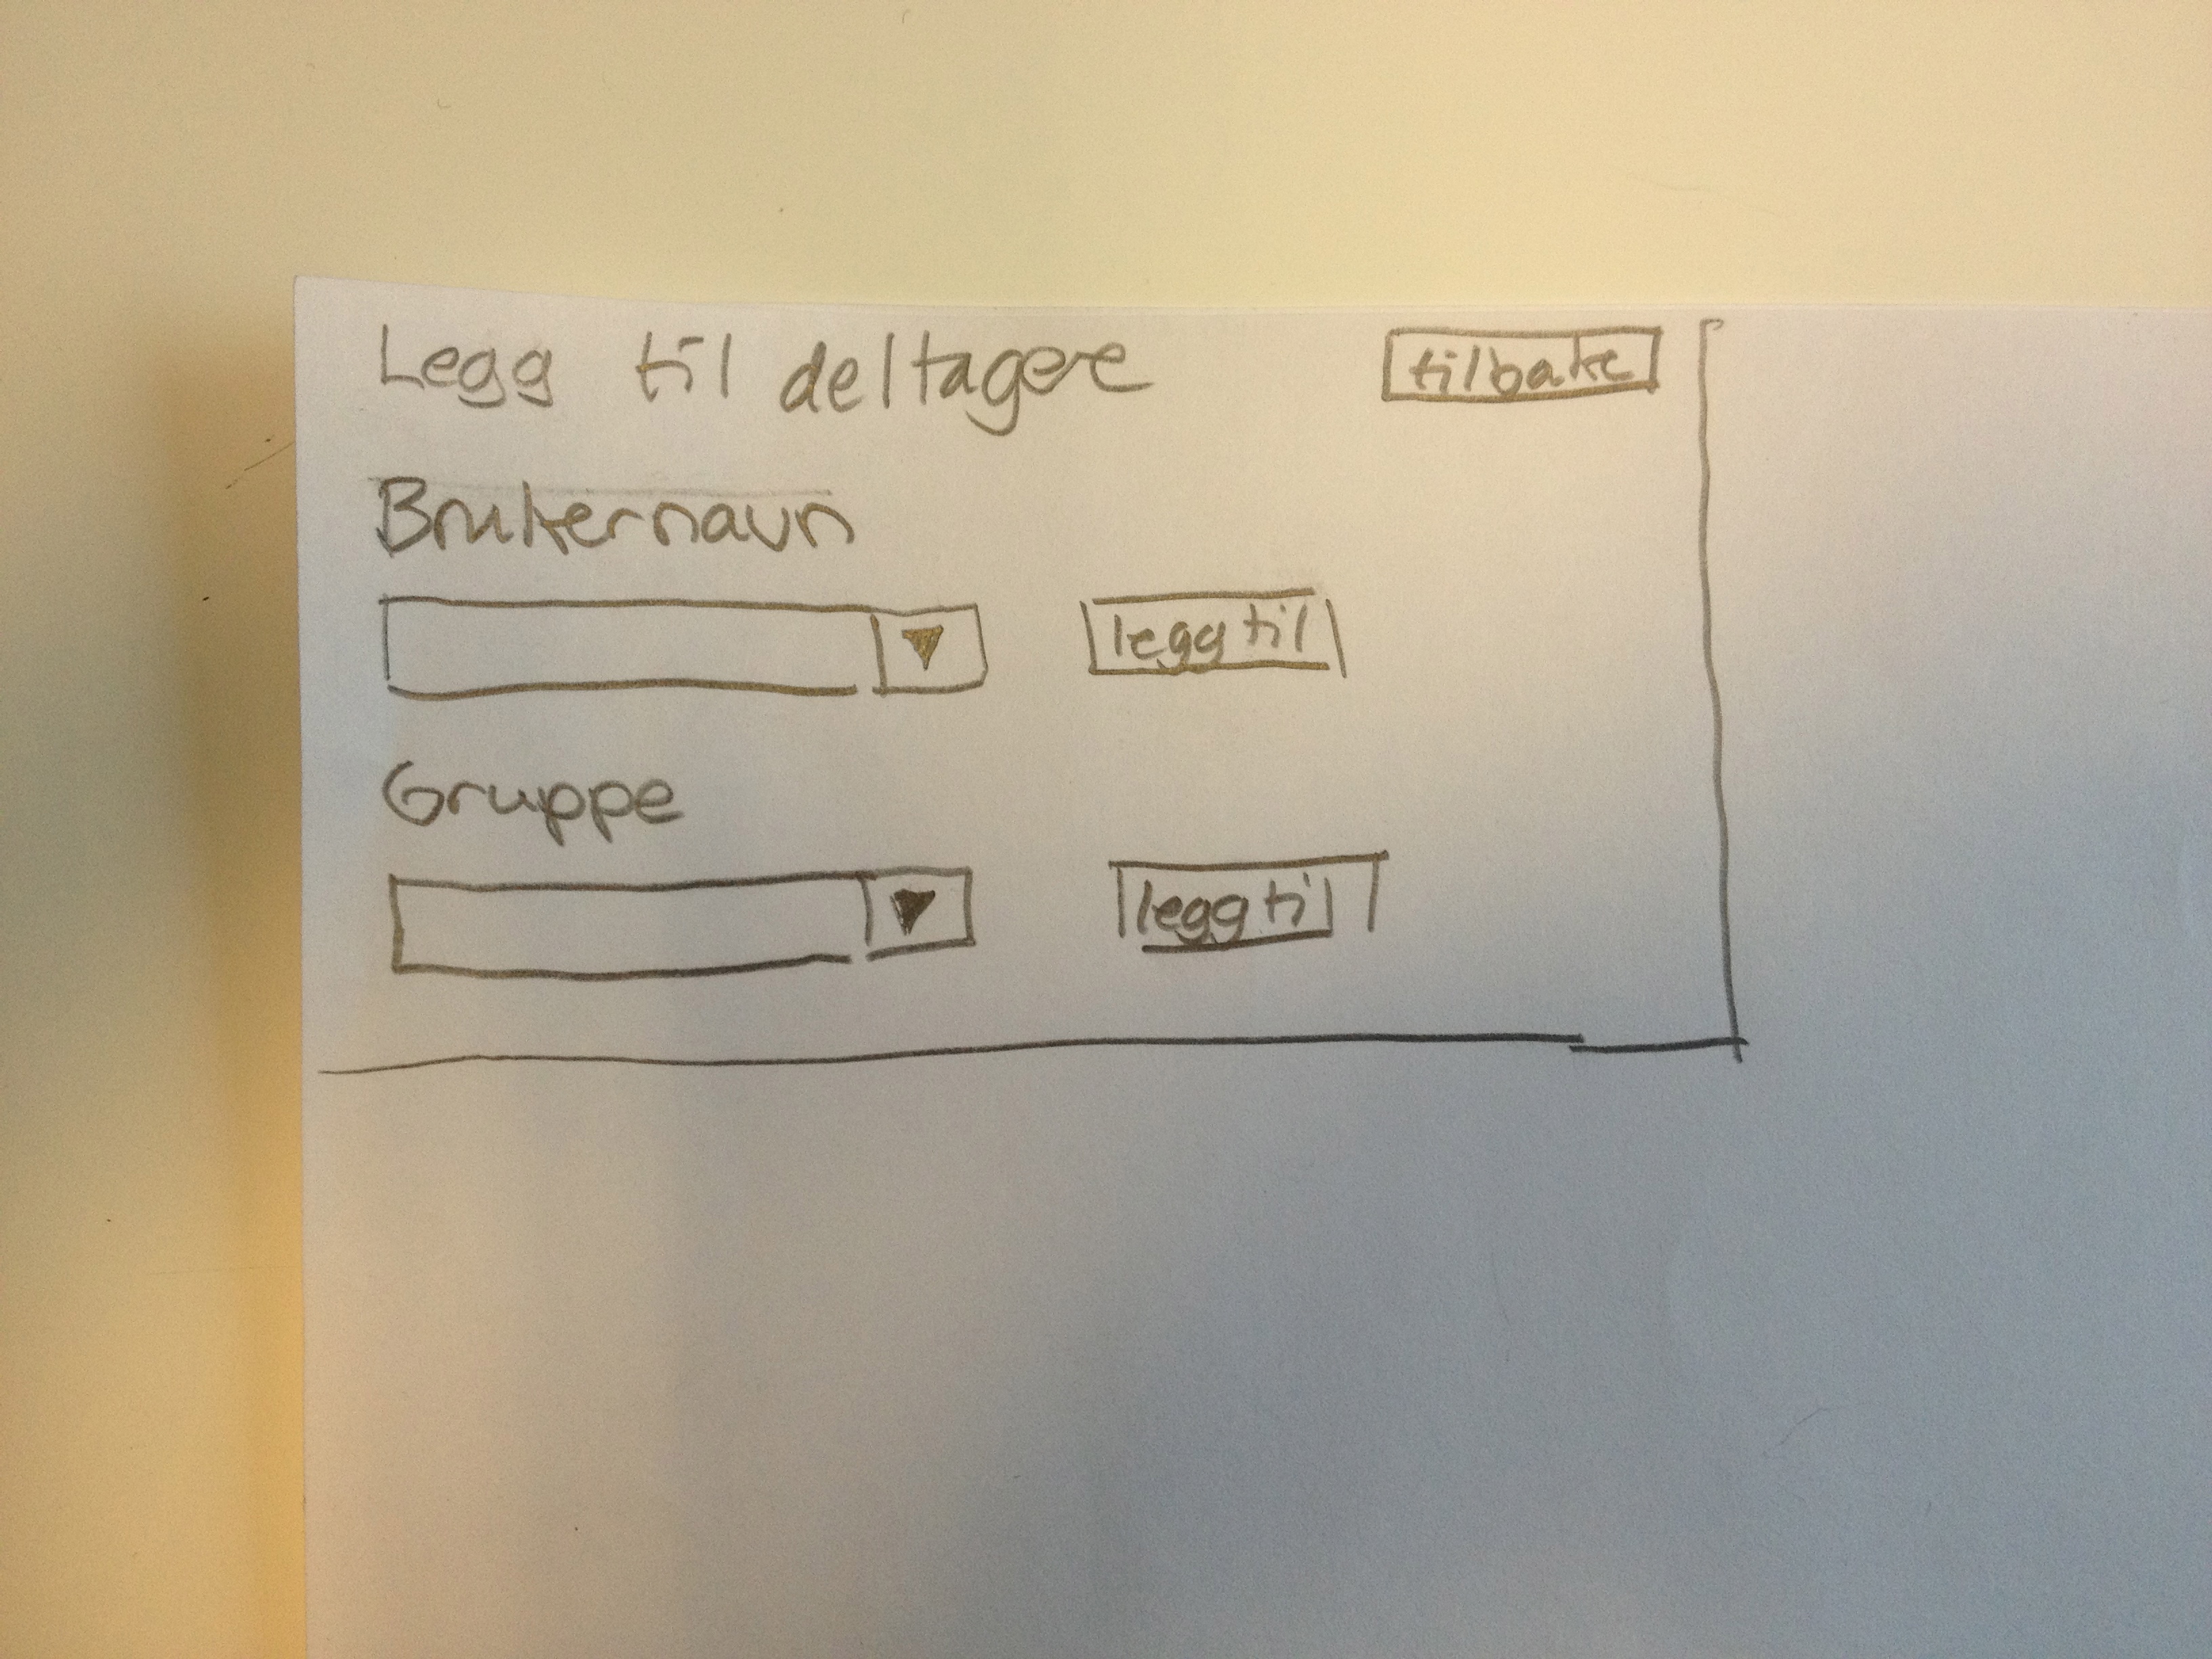 Legg til deltagere tilbake
Brukernavn
legg til
Gruppe
legg til